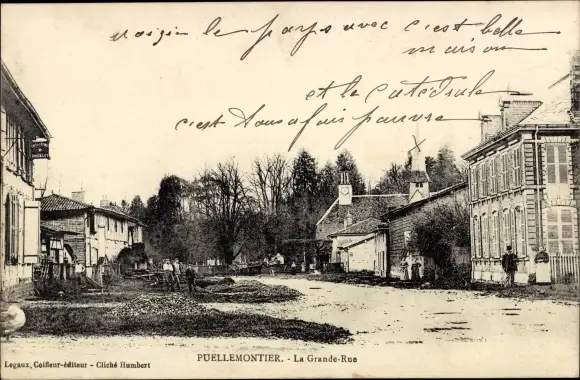 voisin le pays avec c'est belle
maison
et la Catédrale
c'est tous afais pauvre
PUELLEMONTIER. - La Grande-Rue
Legaux, Coiffeur-éditeur - Cliché Humbert